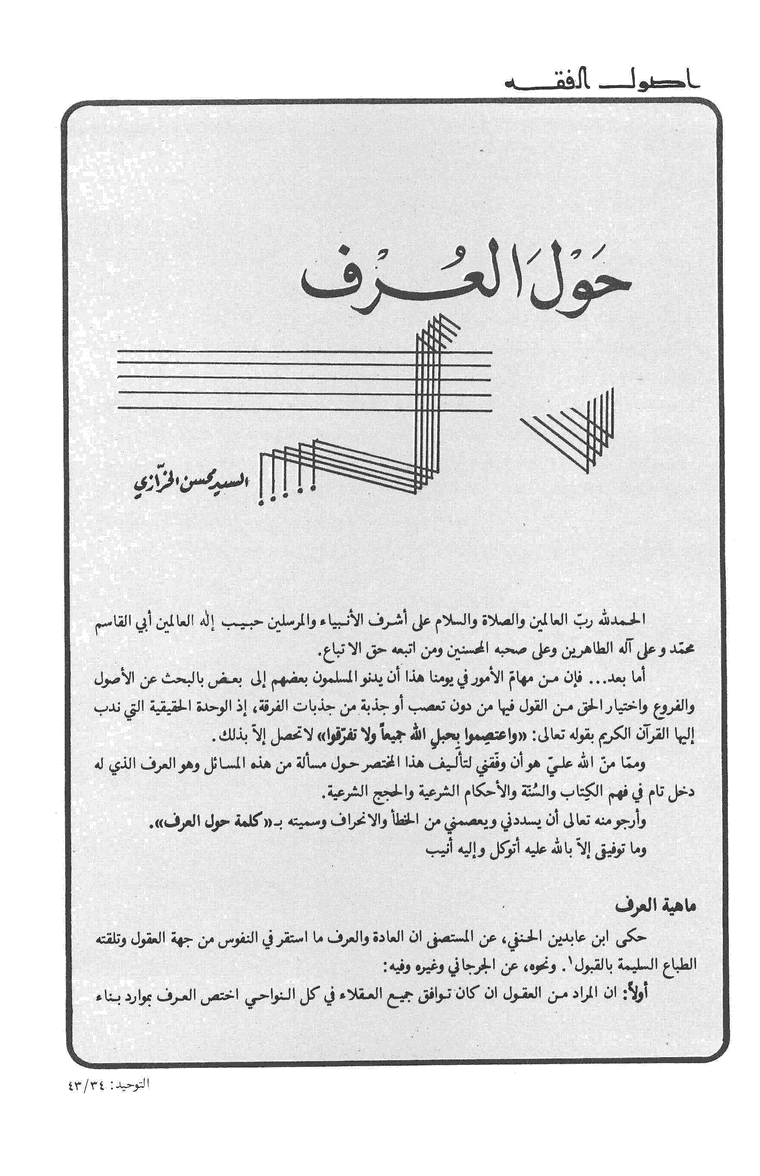 اصول الفقه
حَوْلَ العُرْف
السيد محسن الخرّازي
الحمدلله ربّ العالمين والصلاة والسلام على أشرف الأنبياء والمرسلين حبيب إله العالمين أبي القاسم
محمّد وعلى آله الطاهرين وعلى صحبه المحسنين ومن اتبعه حق الاتباع.
أما بعد... فإن من مهامّ الأمور في يومنا هذا أن يدنو المسلمون بعضهم إلى بعض بالبحث عن الأصول
والفروع واختيار الحق من القول فيها من دون تعصب أو جذبة من جذبات الفرقة، إذ الوحدة الحقيقية التي ندب
إليها القرآن الكريم بقوله تعالى: «واعتصِموا بِحبلِ الله جميعاً ولا تفرّقوا» لاتحصل إلاّ بذلك.
وممّا منّ الله عليّ هو أن وفّقني لتأليف هذا المختصر حول مسألة من هذه المسائل وهو العرف الذي له
دخل تام في فهم الكِتاب والسُنّة والأحكام الشرعية والحجج الشرعية.
وأرجو منه تعالى أن يسددني ويعصمني من الخطأ والانحراف وسميته بـ«كلمة حول العرف».
وما توفيقي إلاّ بالله عليه أتوكل وإليه أنيب
ماهية العرف
حكى ابن عابدين الحنفي، عن المستصفى ان العادة والعرف ما استقر في النفوس من جهة العقول وتلقته
الطباع السليمة بالقبول١. ونحوه، عن الجرجاني وغيره وفيه:
أولاً: ان المراد من العقول ان كان توافق جميع العقلاء في كل النواحي اختص العرف بموارد بناء
التوحيد: ٤٣/٣٤